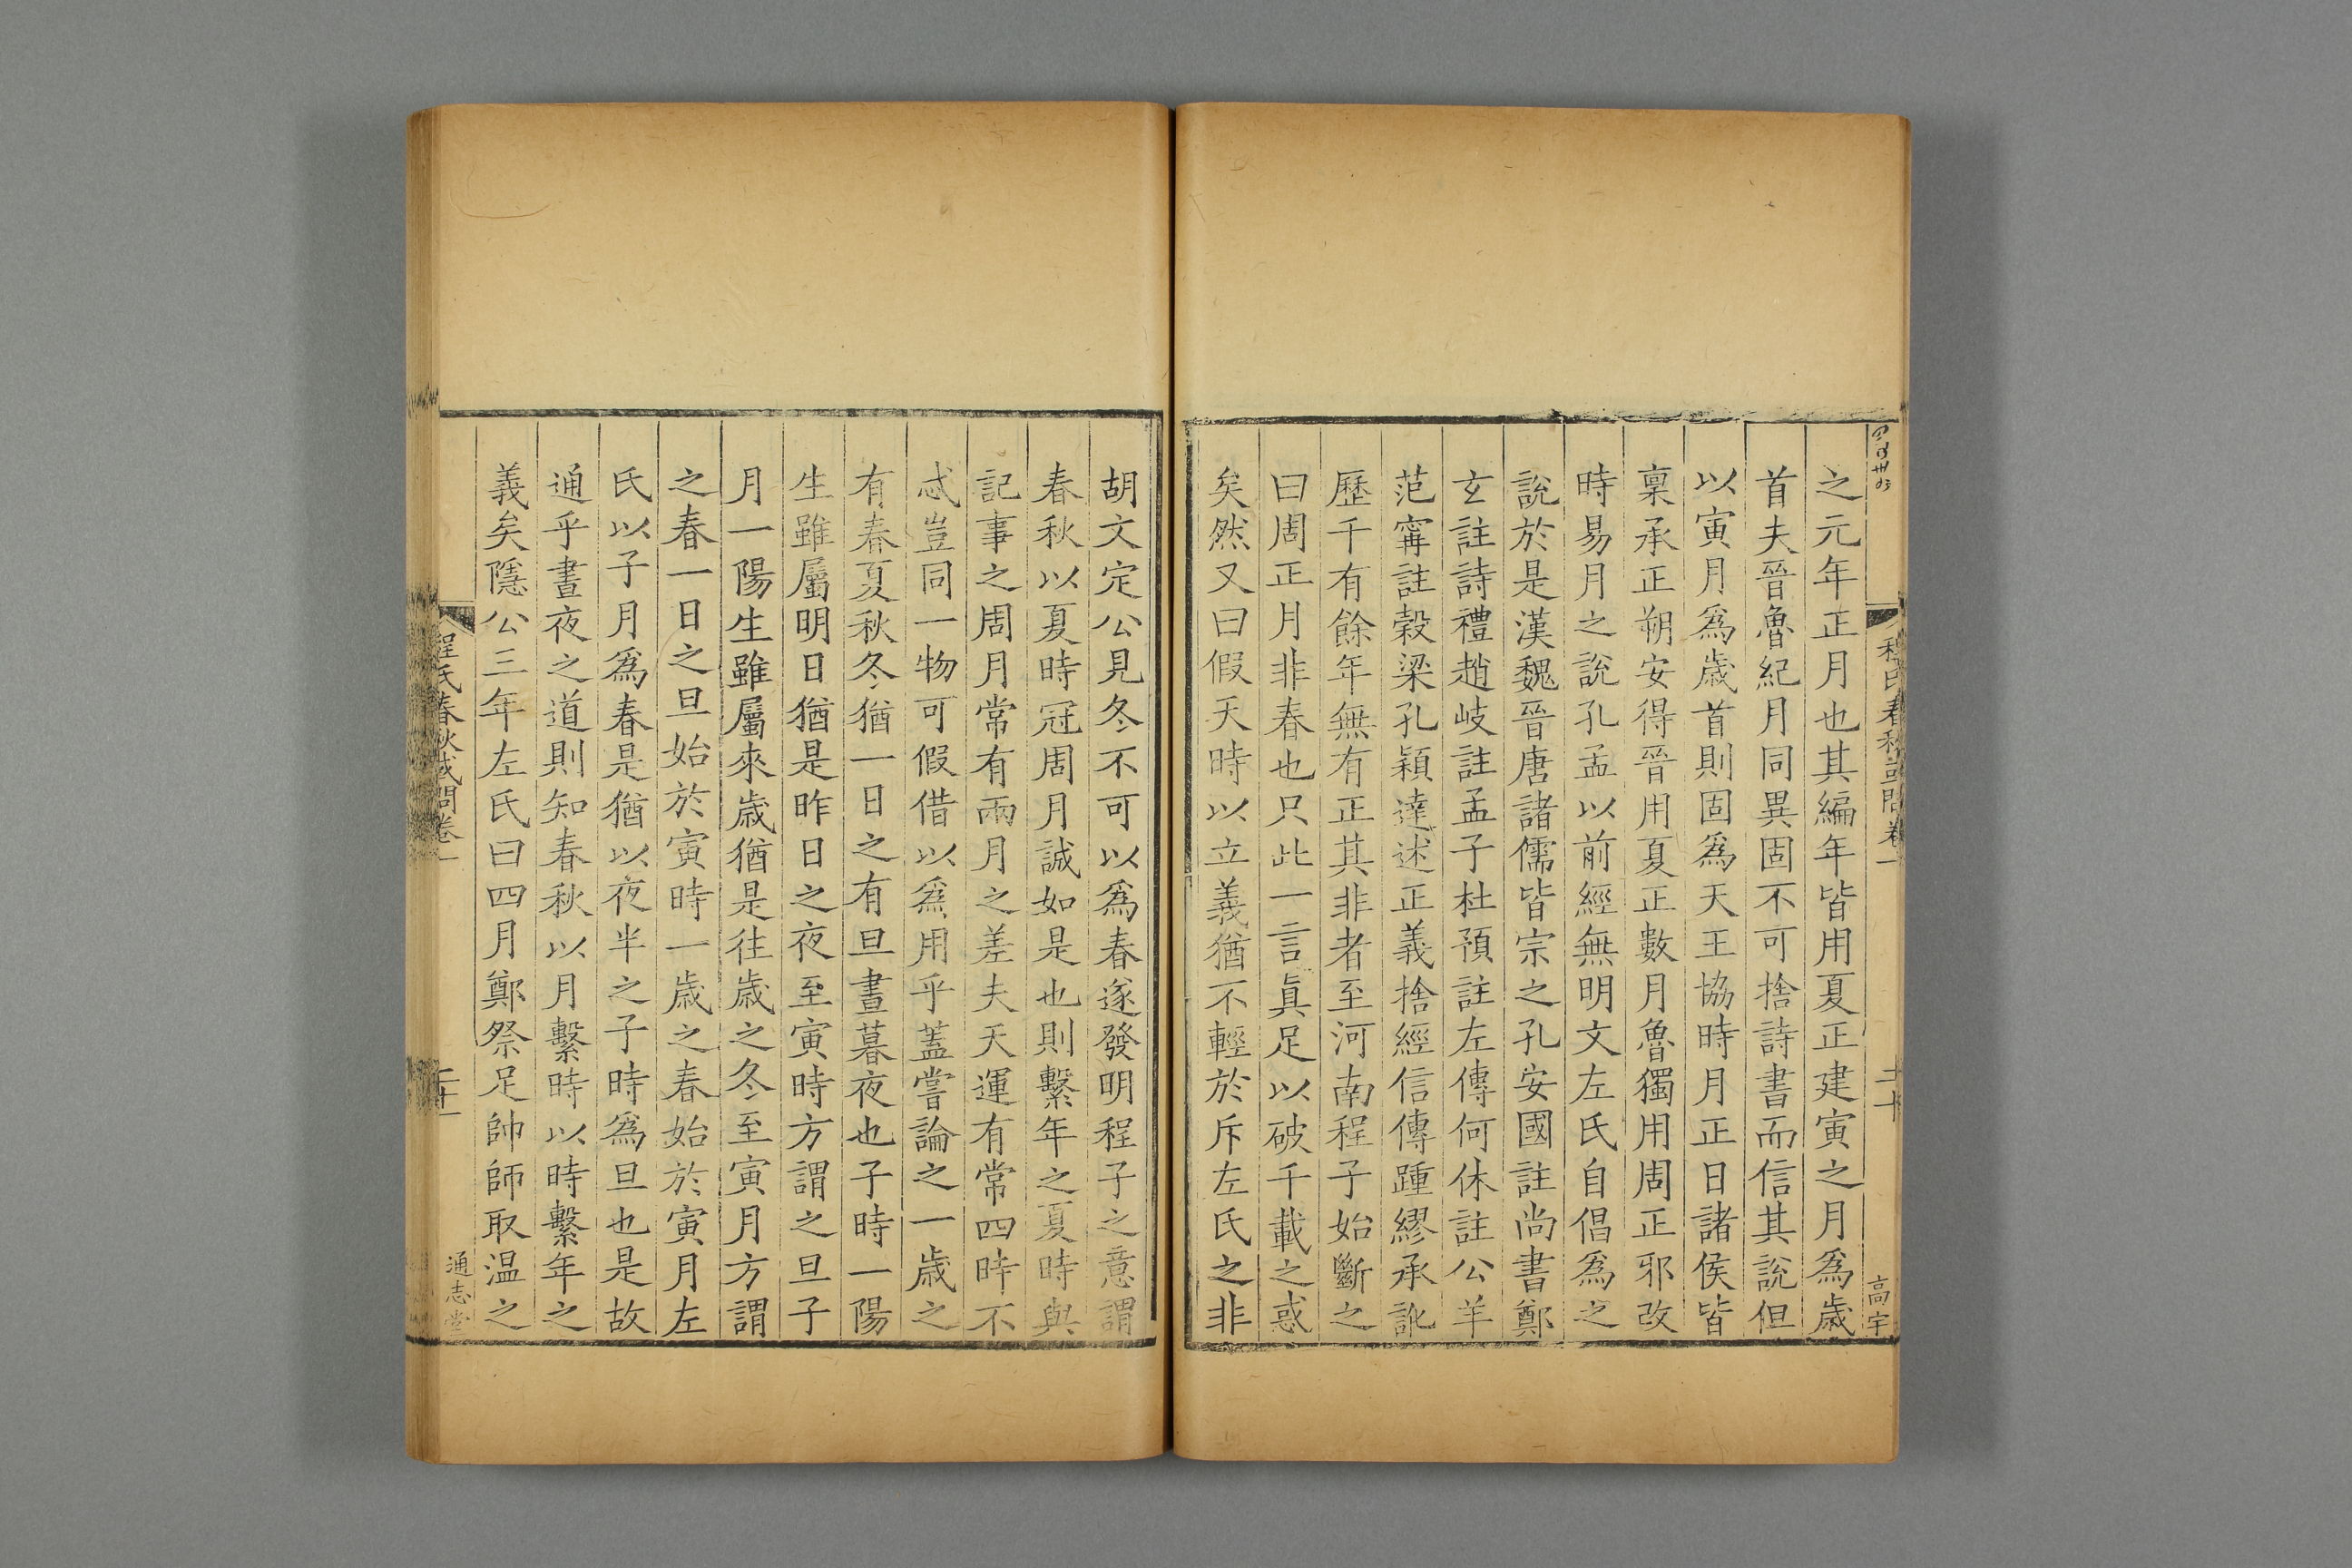 之元年正月也其編年皆用夏正建寅之月爲歲
首夫晉魯紀月同異固不可捨詩書而信其說但
以寅月爲歲首則固爲天王協時月正日諸侯皆
稟承正朔安得晉用夏正數月魯獨用周正邪改
時易月之說孔孟以前經無明文左氏自倡爲之
說於是漢魏晉唐諸儒皆宗之孔安國註尚書鄭
玄註詩禮趙岐註孟子杜預註左傳何休註公羊
范寗註穀梁孔穎達述正義捨經信傳踵繆承訛
歷千有餘年無有正其非者至河南程子始斷之
曰周正月非春也只此一言眞足以破千載之惑
矣然又曰假天時以立義猶不輕於斥左氏之非
高宇
胡文定公見冬不可以爲春遂發明程子之意謂
春秋以夏時冠周月誠如是也則繫年之夏時與
記事之周月常有兩月之差夫天運有常四時不
忒豈同一物可假借以爲用乎蓋嘗論之一歲之
有春夏秋冬猶一日之有旦晝暮夜也子時一陽
生雖屬明日猶是昨日之夜至寅時方謂之旦子
月一陽生雖屬來歲猶是往歲之冬至寅月方謂
之春一日之旦始於寅時一歲之春始於寅月左
氏以子月爲春是猶以夜半之子時爲旦也是故
通乎晝夜之道則知春秋以月繫時以時繫年之
義矣隱公三年左氏曰四月鄭祭足帥師取温之
程氏春秋或問卷一
通志堂